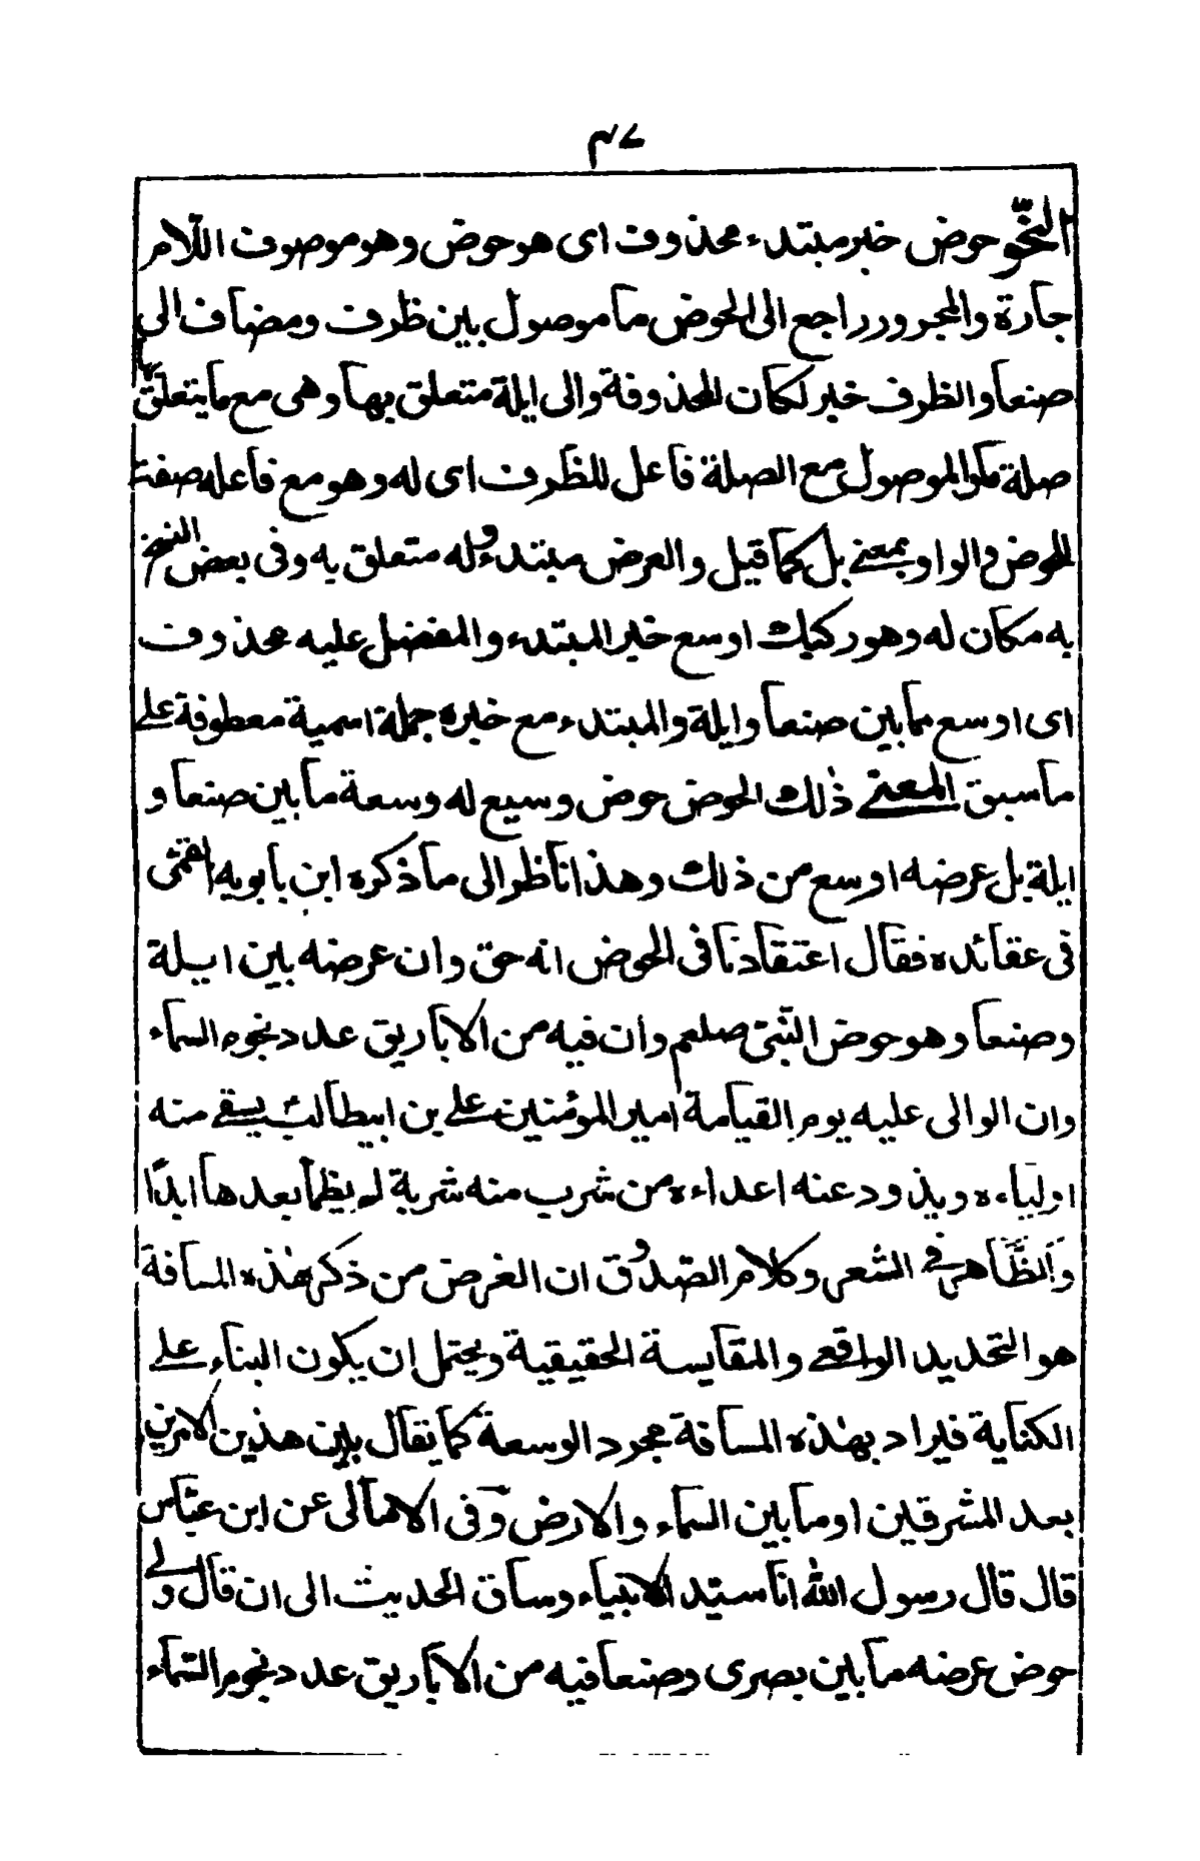 ٤٧
النحّو حوض خبر مبتدء محذوف اى هو حوض وهو موصوف اللّام
جارة والمجرور راجع الى الحوض ما موصول بين ظرف ومضاف الى
صنعا والظرف خبر لكان المحذوفة والى ايلة متعلق بها وهى مع ما يتعلّق بها
صلة ما والموصول مع الصلة فاعل للظرف اى له وهو مع فاعله صفت
للحوض والواو بمعنے بل كما قيل والعرض مبتدء وله متعلق به وفى بعض النسخ
به مكان له وهو ركيك اوسع خبر المبتدء والمفضل عليه محذوف
اى اوسع مما بين صنعا وايلة والمبتدء مع خبره جملة اسمية معطوفة علے
ما سبق المعنے ذلك الحوض حوض وسيع له وسعة ما بين صنعا و
ايلة بل عرضه اوسع من ذلك وهذا ناظر الى ما ذكره ابن بابويه القمّى
فى عقائده فقال اعتقادنا فى الحوض انه حق وان عرضه بين ايلة
وصنعا وهو حوض النّبى صلعم وان فيه من الاباريق عدد نجوم السماء
وان الوالى عليه يوم القيامة امير المؤمنين علے بن ابيطالب يسقے منه
اولياءه ويذود عنه اعداءه من شرب منه شربة لم يظمأ بعدها ابدًا
وَالظَّاهر فے الشعر وكلام الصّدوق ان الغرض من ذكر هذه المسافة
هو التحديد الواقعے والمقايسة الحقيقية ويحتمل ان يكون البناء علے
الكناية فيراد بهذه المسافة مجرد الوسعة كما يقال بين هذين الامرين
بعد المشرقين او ما بين السماء والارض وفى الامالى عن ابن عبّاس
قال قال رسول اللّٰه انا سيّد الانبياء وساق الحديث الى ان قال ولے
حوض عرضه ما بين بصرى وصنعا فيه من الاباريق عدد نجوم السّماء